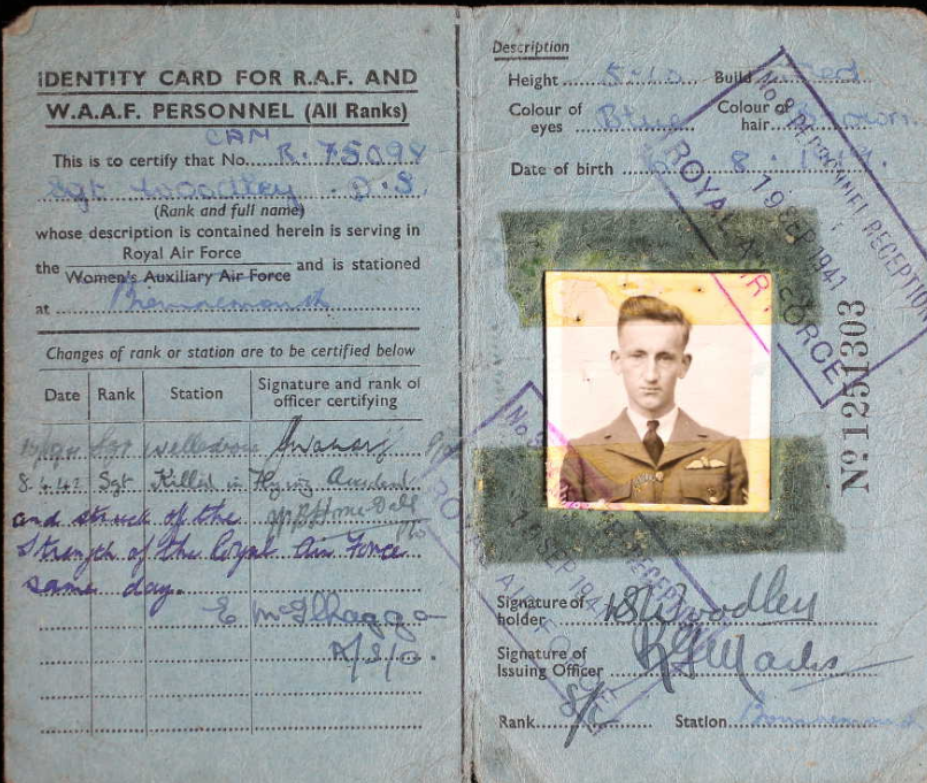 IDENTITY CARD FOR R.A.F. AND
W.A.A.F. PERSONNEL (All Ranks)
CAN
This is to certify that No. R. 75098
Sgt Woodley . D.S.
(Rank and full name)
whose description is contained herein is serving in
Royal Air Force
the Women's Auxiliary Air Force and is stationed
at Bournemouth
Changes of rank or station are to be certified below
Date Rank Station Signature and rank of officer certifying
Sgt
8.4.42 Sgt Killed in Flying Accident
and struck of the
Strength of the Royal Air Force
same day.
A/S/O.
Description
Height 5-10 Build
Colour of eyes Blue Colour of hair Brown
Date of birth 8.
No 9 PERSONNEL RECEPTION
19 SEP 1941
ROYAL AIR FORCE
Nº 1251303
19 SEP 194
Signature of holder DSWoodley
Signature of Issuing Officer
Rank Station Bournemouth